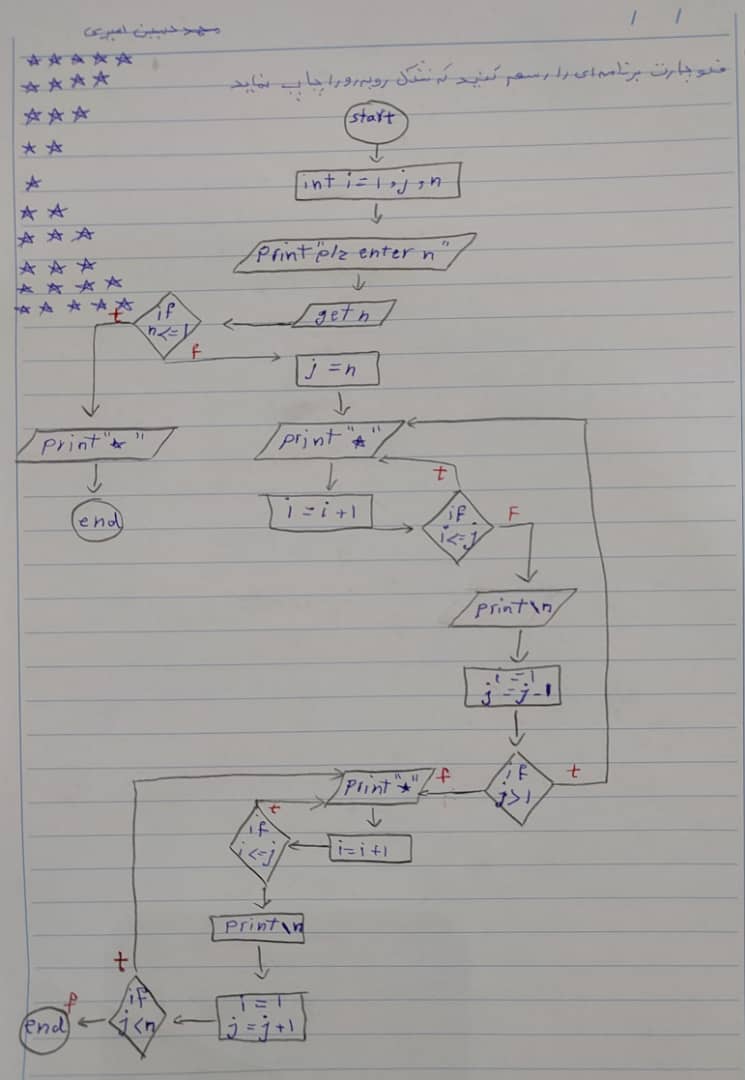 محمد حسین امیری
فلوچارت برنامه ای را رسم کنید که شکل روبه رو را چاپ نماید
start
int i=1,j,n
print "plz enter n"
get n
if
n<=1
t
f
j=n
print "★"
end
print "★"
i=i+1
if
i<=j
t
F
print\n
i=1
j=j-1
if
j>1
t
f
print "★"
i=i+1
if
i<=j
t
print\n
i=1
j=j+1
if
j<n
t
f
end